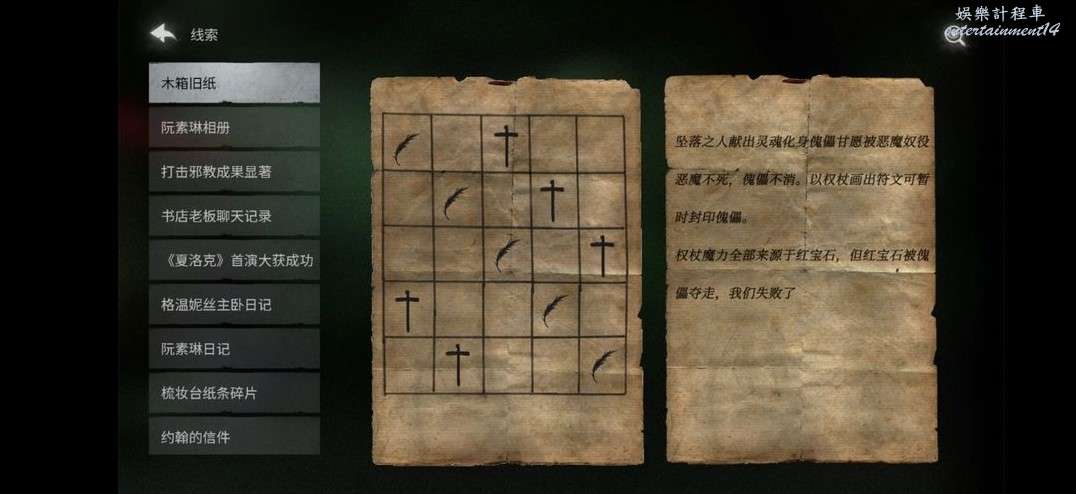 娛樂計程車
entertainment14
线索
木箱旧纸
阮素琳相册
打击邪教成果显著
书店老板聊天记录
《夏洛克》首演大获成功
格温妮丝主卧日记
阮素琳日记
梳妆台纸条碎片
约翰的信件
坠落之人献出灵魂化身傀儡甘愿被恶魔奴役
恶魔不死，傀儡不消。以权杖画出符文可暂
时封印傀儡。
权杖魔力全部来源于红宝石，但红宝石被傀
儡夺走，我们失败了